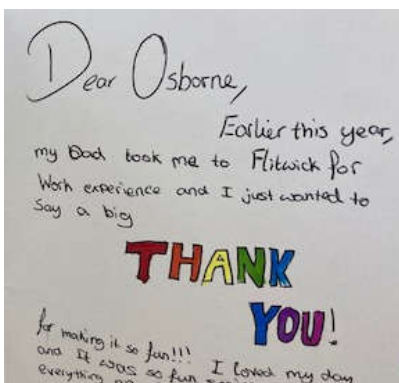 Dear Osborne,
Earlier this year,
my Dad took me to Flitwick for
Work experience and I just wanted to
Say a big
THANK
YOU!
for making it so fun!!! I loved my day
and It was so fun
everything